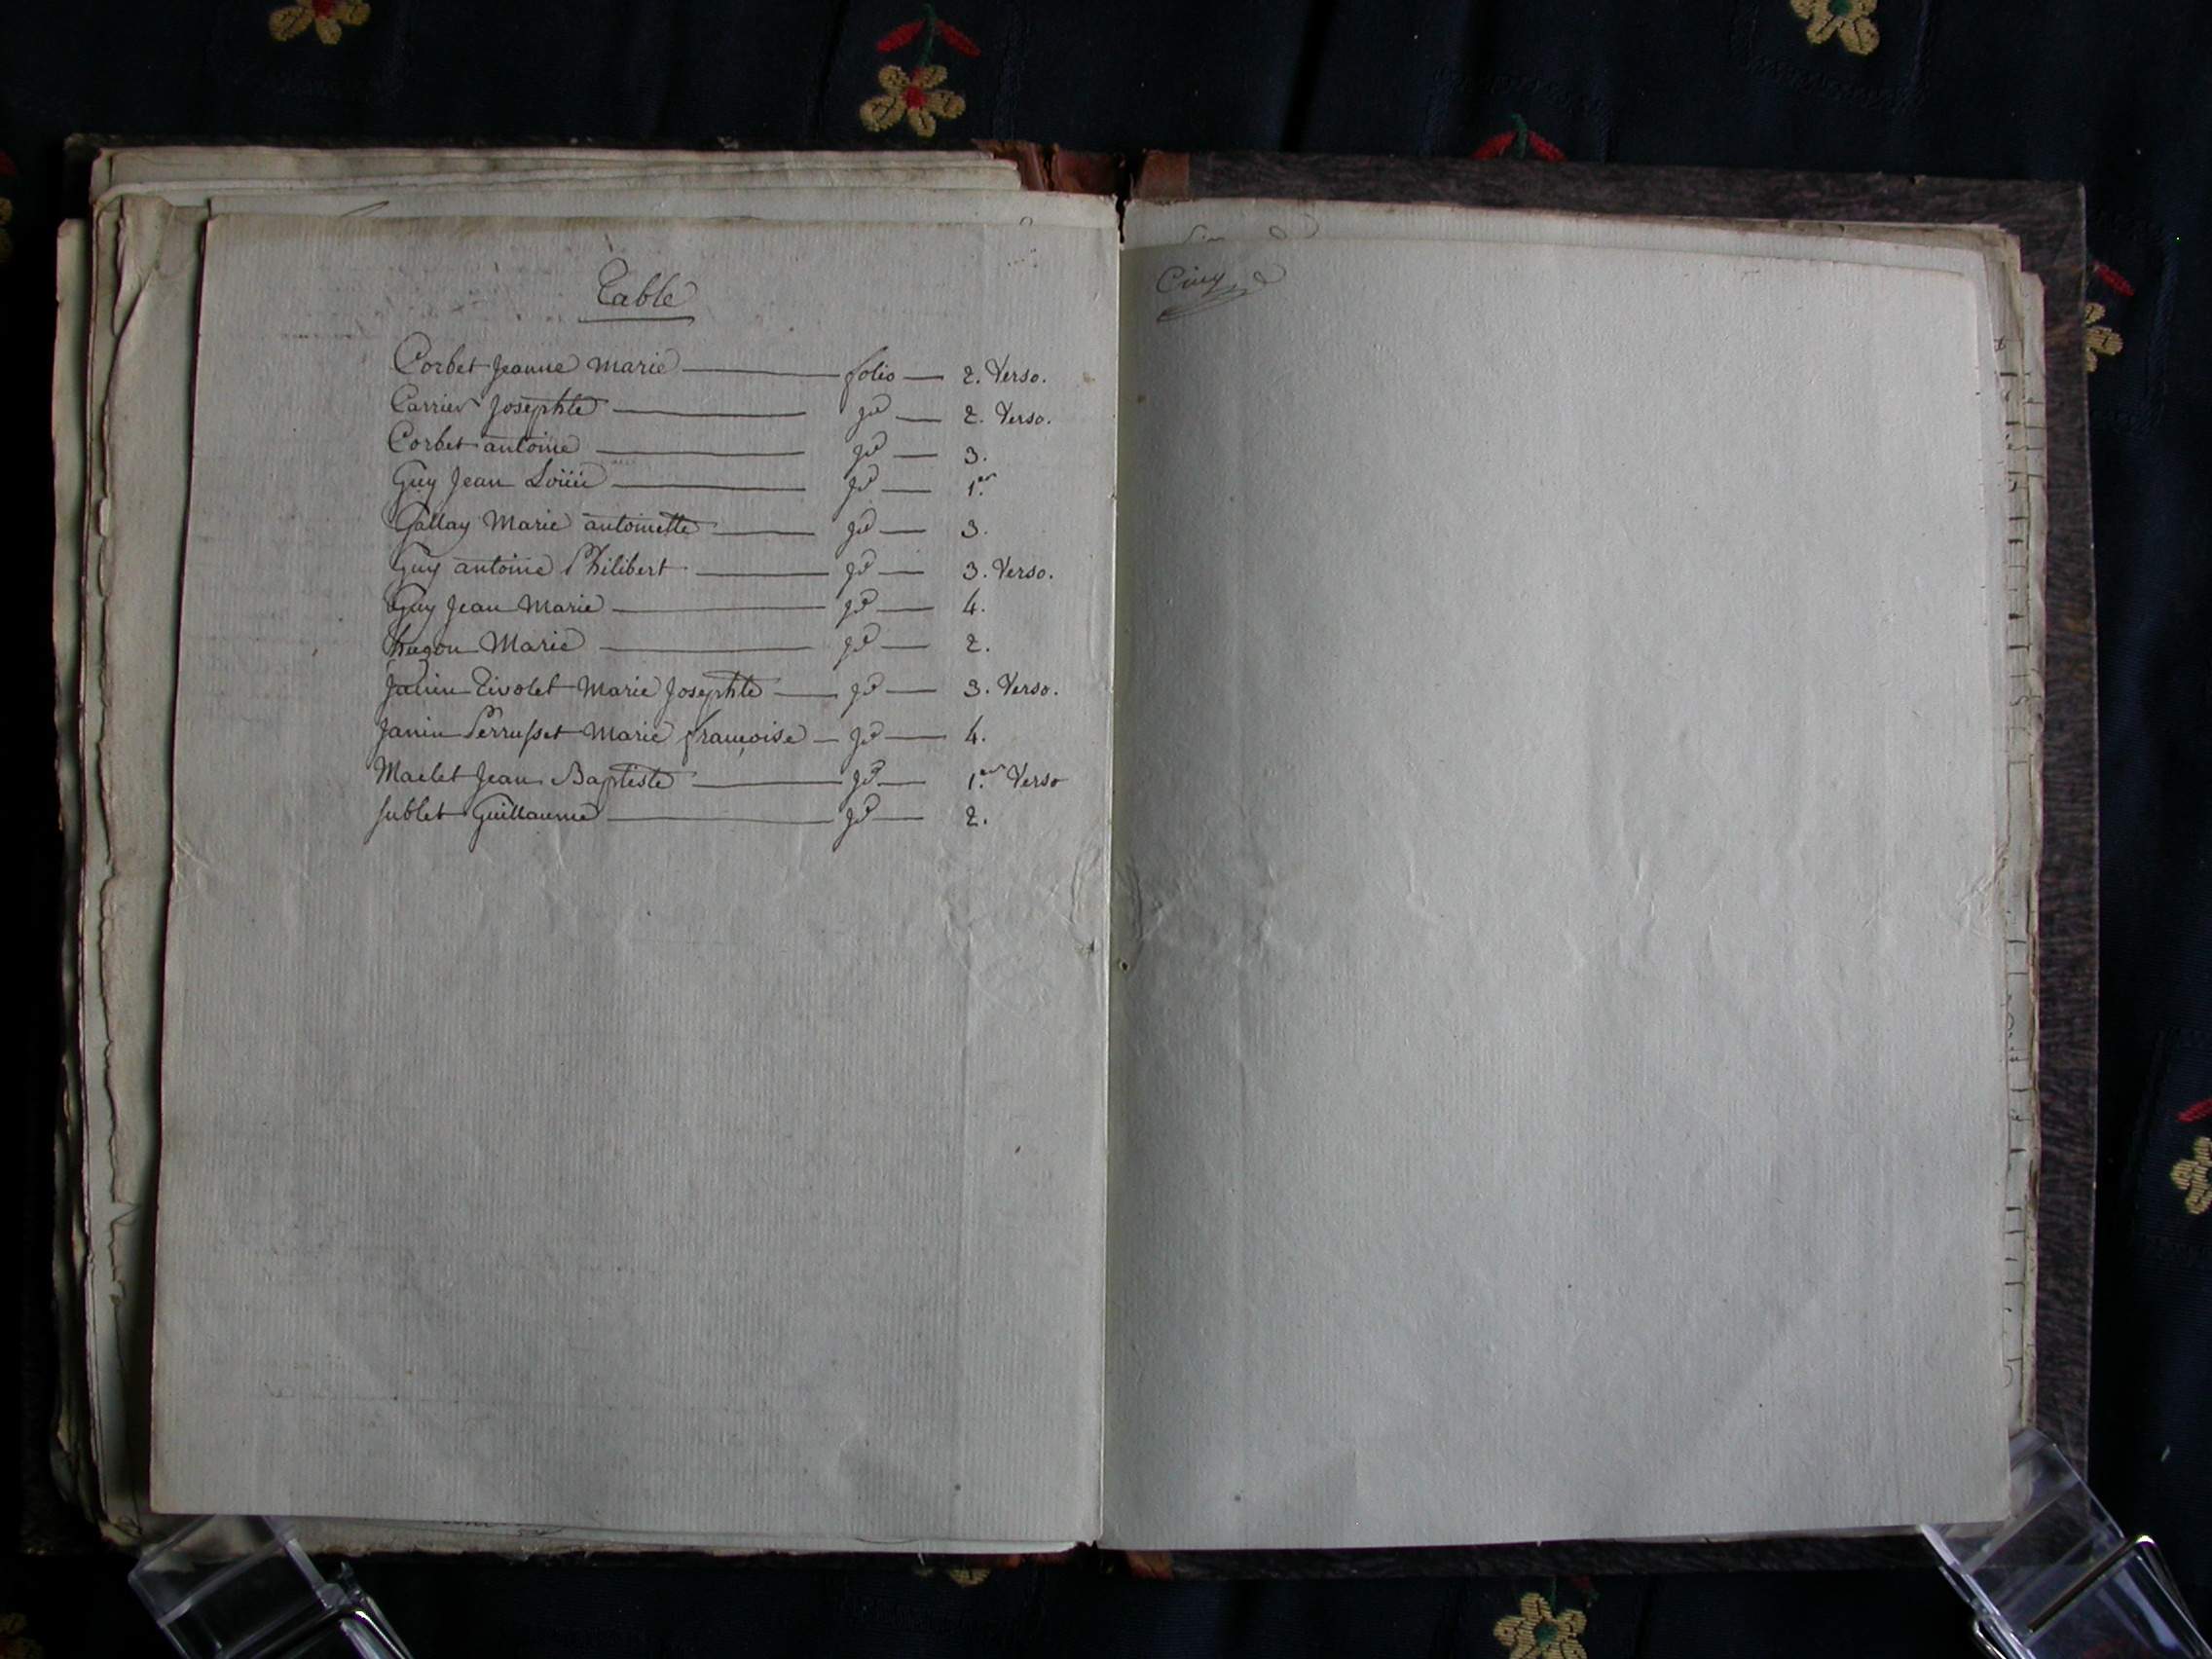 Table
Corbet Jeanne Marie folio 2. Verso.
Carrier Josephte jd 2. Verso.
Corbet antoine jd 3.
Guy Jean Loüis jd 1.er
Gallay Marie antoinette jd 3.
Guy antoine Philibert jd 3. Verso.
Guy Jean Marie jd 4.
hugon Marie jd 2.
Janin Tivolet Marie Josephte jd 3. Verso.
Janin Perrusset Marie françoise jd 4.
Maclet Jean Baptiste jd 1.er Verso
Sublet Guillaume jd 2.
Cinq